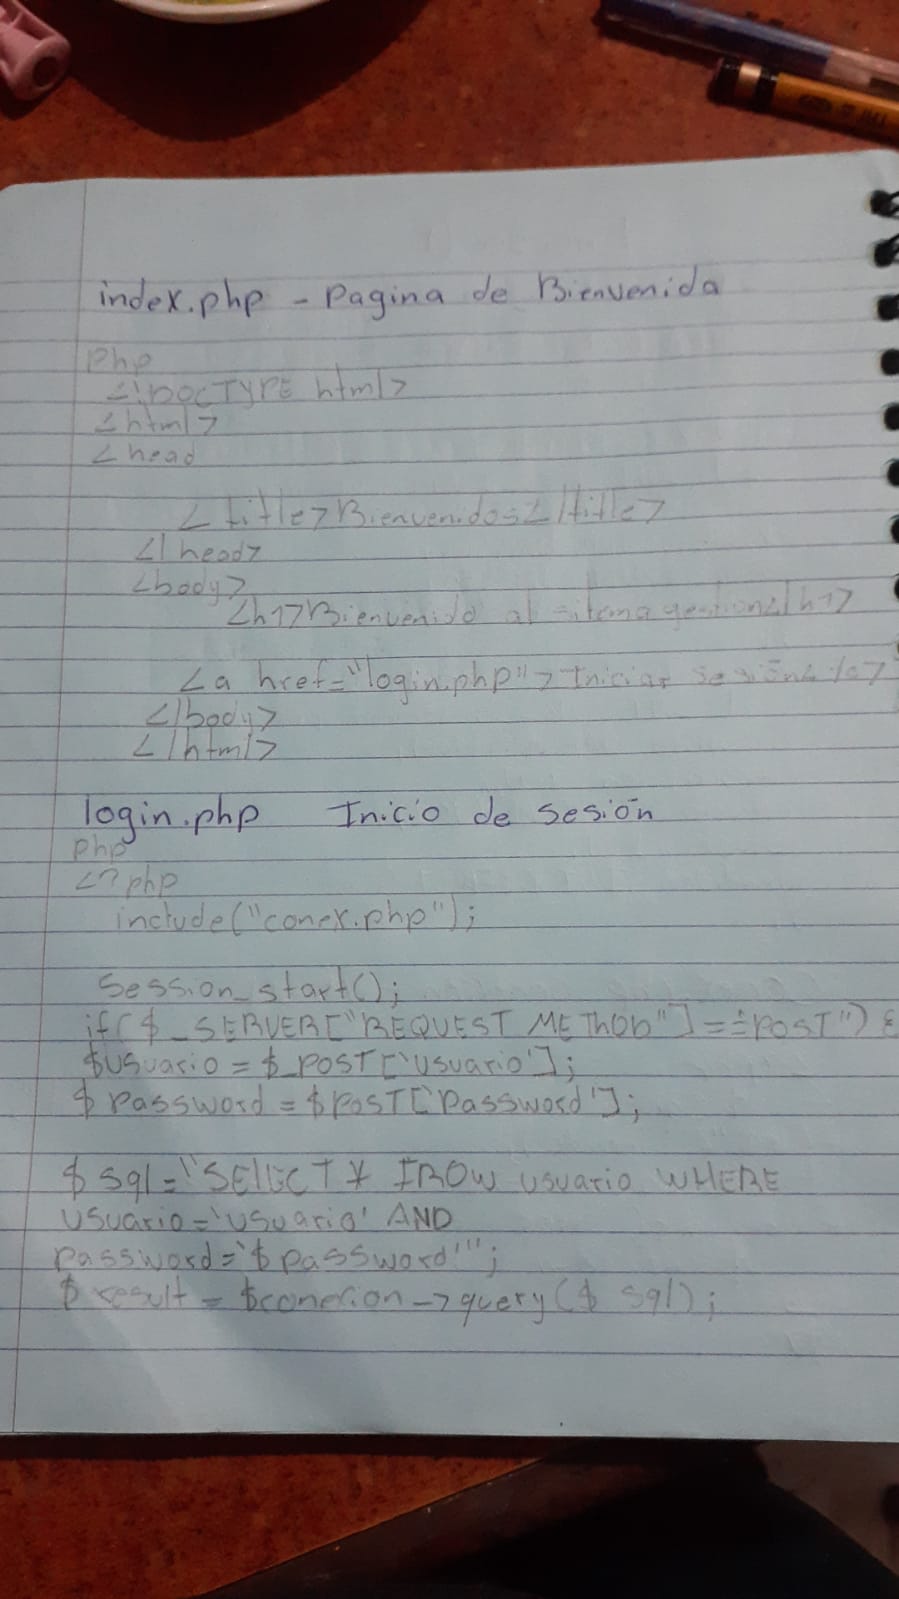 index.php - Pagina de Bienvenida
Php
<!DOCTYPE html>
<html>
<head
<title>Bienvenidos</title>
</head>
<body>
<h1>Bienvenido al gestion</h1>
<a href="login.php">Iniciar sesión</a>
</body>
</html>
login.php Inicio de sesión
Php
<?php
include("conex.php");
Session_start();
if($_SERVER["REQUEST METhOD"]=="POST") {
$usuario = $_POST['usuario'];
$ Password = $POST['Password'];
$ sql="SElECT * FROW usuario WHERE
usuario='usuario' AND
password='$password'";
$ result = $conexion->query($ sql);